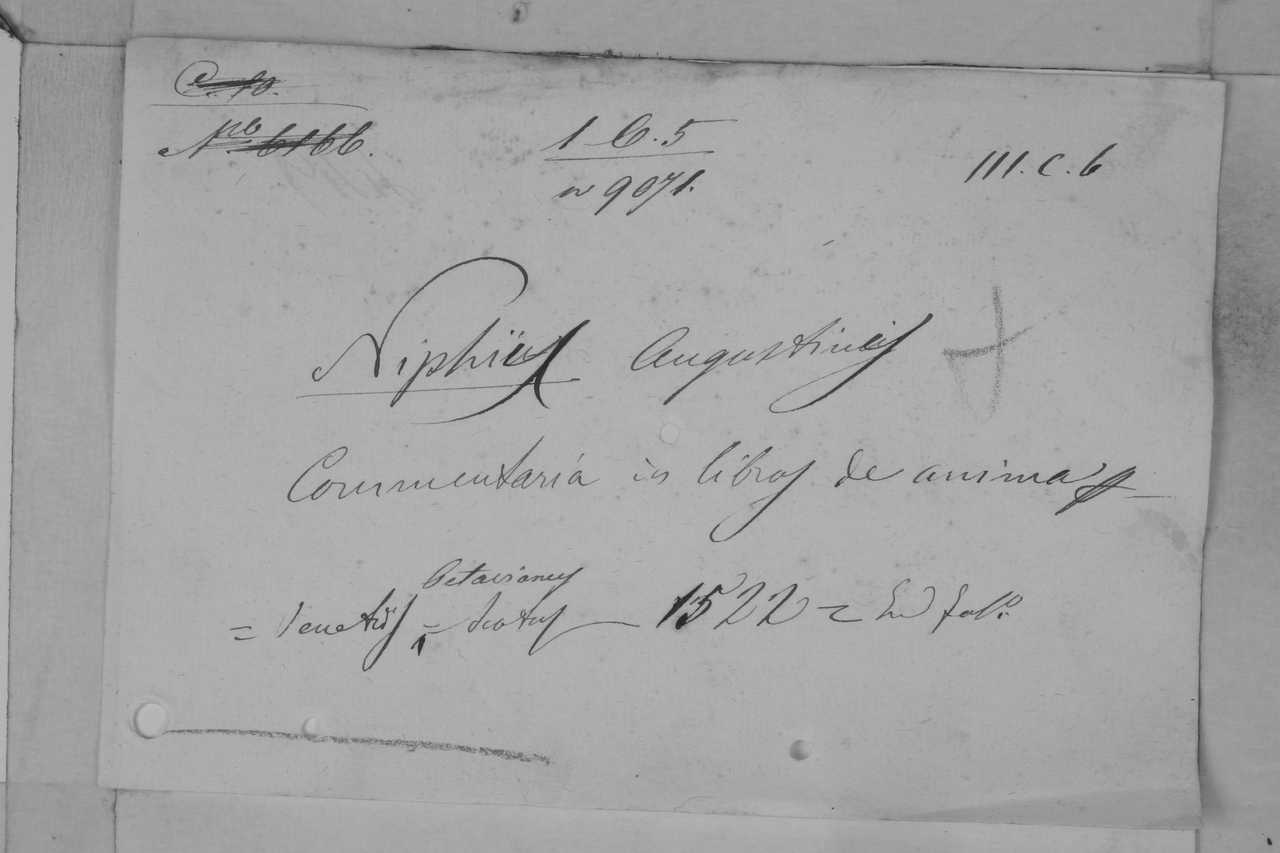 C. 10.
Nro 6166.
1 C. 5
n 9071.
III. C. 6
Niphus Augustinus
Commentaria in libros de anima
Octavianus
= Venetiis = Scotus — 1522 = In fol.º